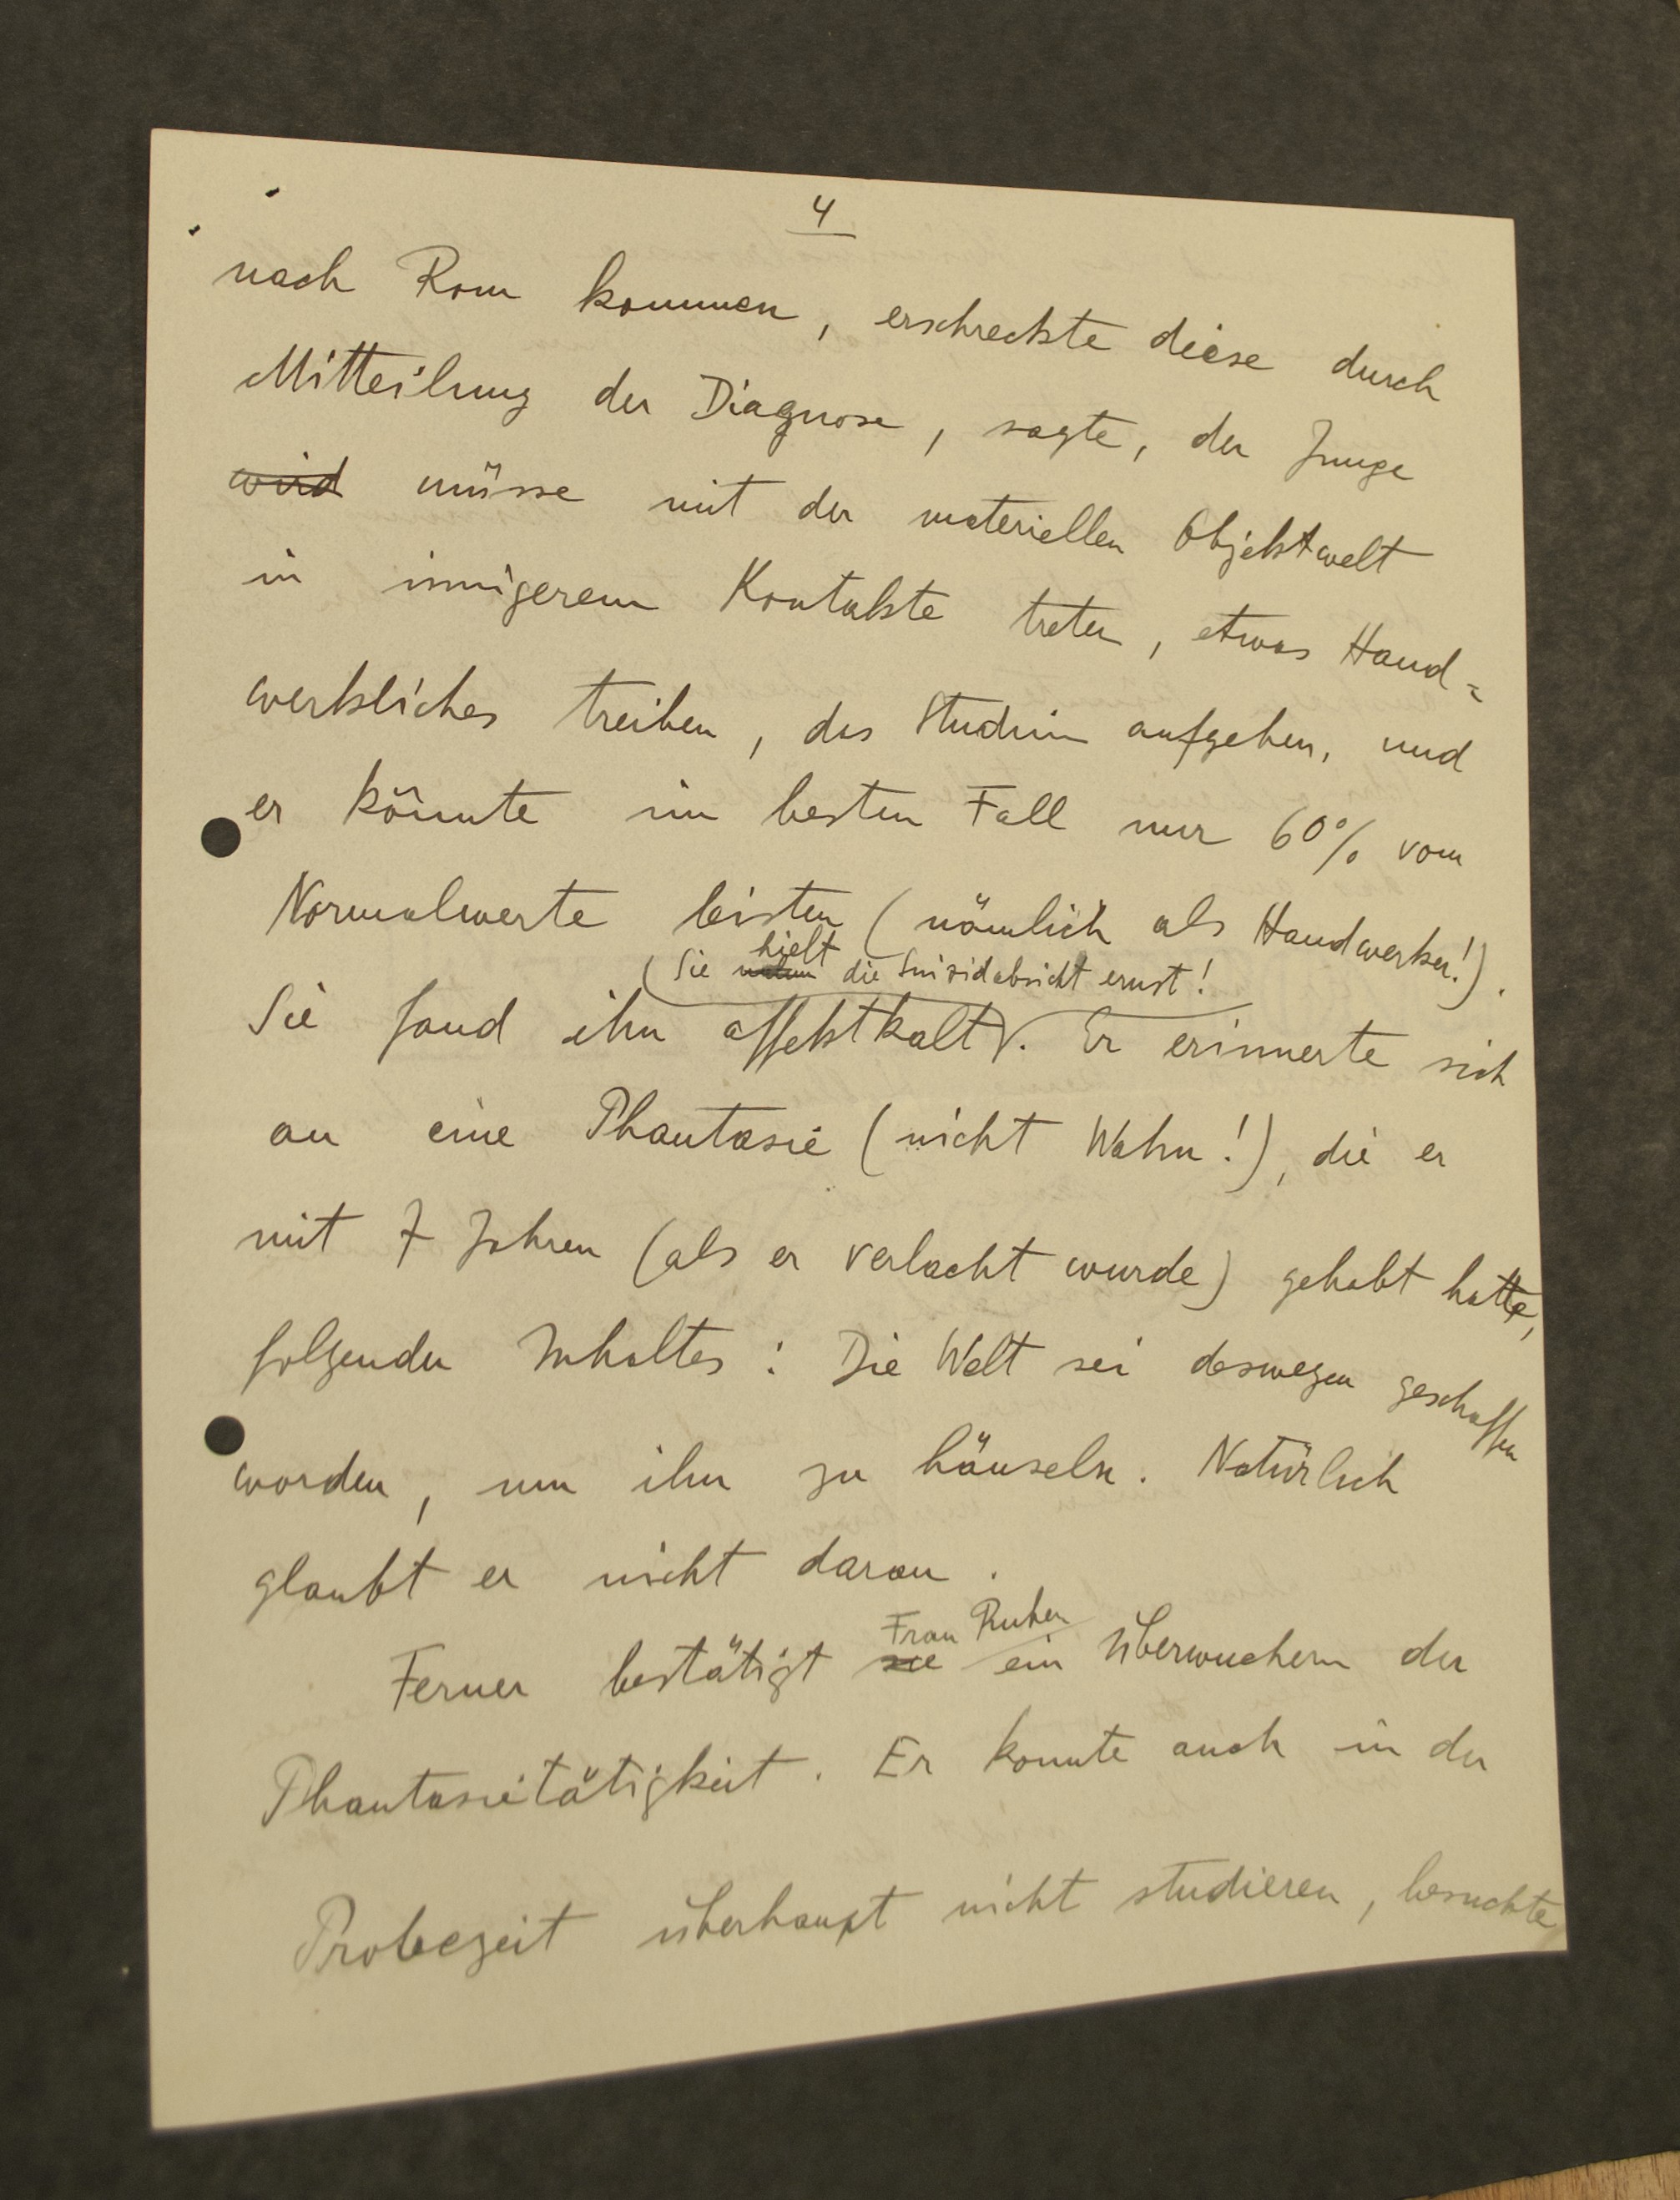 4
nach Rom kommen, erschreckte diese durch
Mitteilung der Diagnose, sagte, der Junge
wird müsse mit der materiellen Objektwelt
in innigerem Kontakte treten, etwas Hand=
werkliches treiben, das Studium aufgeben, und
er könnte im besten Fall nur 60% vom
Normalwerte leisten (nämlich als Handwerker!).
hielt
(Sie nahm die Suizidabsicht ernst!
Sie fand ihn affektkalt). Er erinnerte sich
an eine Phantasie (nicht Wahn!), die er
mit 7 Jahren (als er verlacht wurde) gehabt hatte,
folgenden Inhaltes: Die Welt sei deswegen geschaffen
worden, um ihn zu hänseln. Natürlich
glaubt er nicht daran.
Frau Ruben
Ferner bestätigt sie ein Überwuchern der
Phantasietätigkeit. Er konnte auch in der
Probezeit überhaupt nicht studieren, besuchte